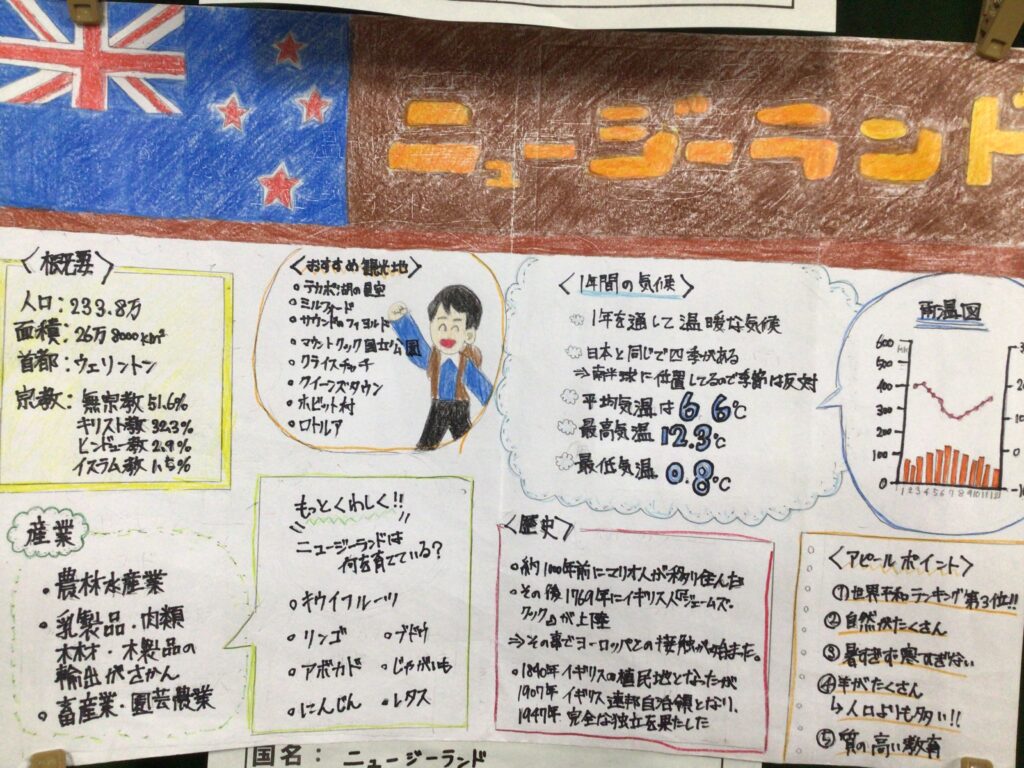 ニュージーランド
〈概要〉
人口：233.8万
面積：26万8000km²
首都：ウェリントン
宗教：無宗教 51.6%
キリスト教 32.3%
ヒンドゥー教 2.9%
イスラム教 1.5%
〈おすすめ観光地〉
テカポ湖の星空
ミルフォード
サウンドのフィヨルド
マウントクック国立公園
クライストチャーチ
クイーンズタウン
ホビット村
ロトルア
〈1年間の気候〉
1年を通して温暖な気候
日本と同じで四季がある
⇒南半球に位置してるので季節は反対
平均気温は6.6℃
最高気温 12.3℃
最低気温 0.8℃
雨温図
600
500
400
300
200
100
0
1 2 3 4 5 6 7 8 9 10 11 12
産業
・農林水産業
・乳製品・肉類
木材・木製品の
輸出がさかん
・畜産業・園芸農業
もっとくわしく!!
ニュージーランドは
何を育てている?
キウイフルーツ
リンゴ ブドウ
アボカド じゃがいも
にんじん レタス
〈歴史〉
約1000年前にマリオ人が移り住んだ
その後1769年にイギリス人『ジェームズ・
クック』が上陸
⇒その事でヨーロッパとの接触が始まった。
1840年イギリスの植民地となったが
1907年 イギリス連邦自治領となり、
1947年 完全な独立を果たした
〈アピールポイント〉
①世界平和ランキング第3位!!
②自然がたくさん
③暑すぎず寒すぎない
④羊がたくさん
↳人口よりも多い!!
⑤質の高い教育
国名： ニュージーランド